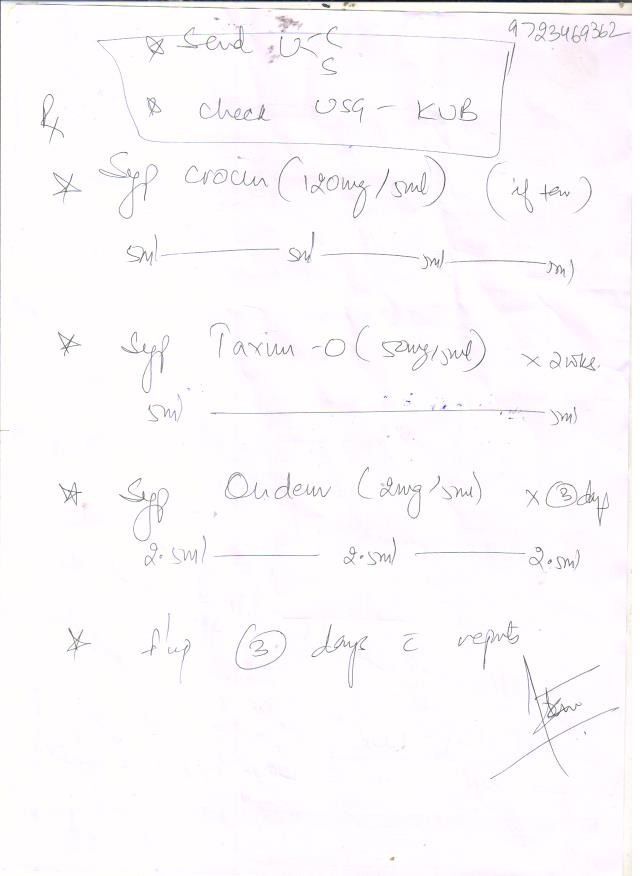 9723469362
* Send U - C
S
* check USG - KUB
Rx
* Syp Crocin (120mg/5ml) (if fever)
5ml — 5ml — 5ml — 5ml
* Syp Taxim-O (50mg/5ml) x 2 wks.
5ml — 5ml
* Syp Ondem (2mg/5ml) x 3 days
2.5ml — 2.5ml — 2.5ml
* f/up 3 days c reports